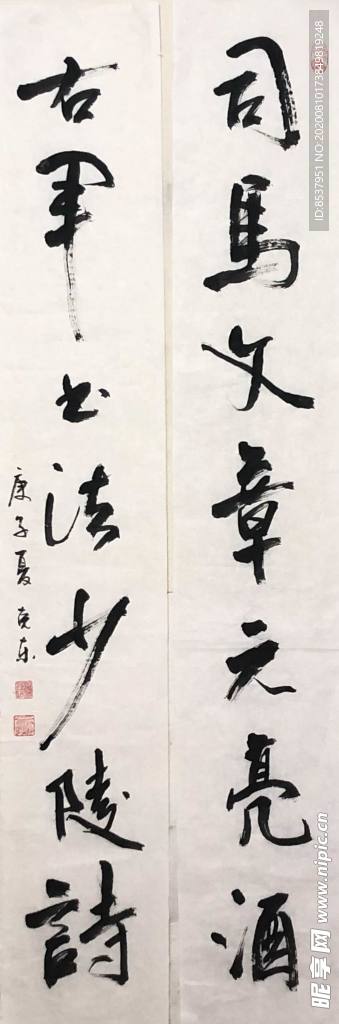 司馬文章元亮酒
右軍书法少陵詩
庚子夏克东
ID:8537951 NO:20200810173849819248
昵享网 www.nipic.cn